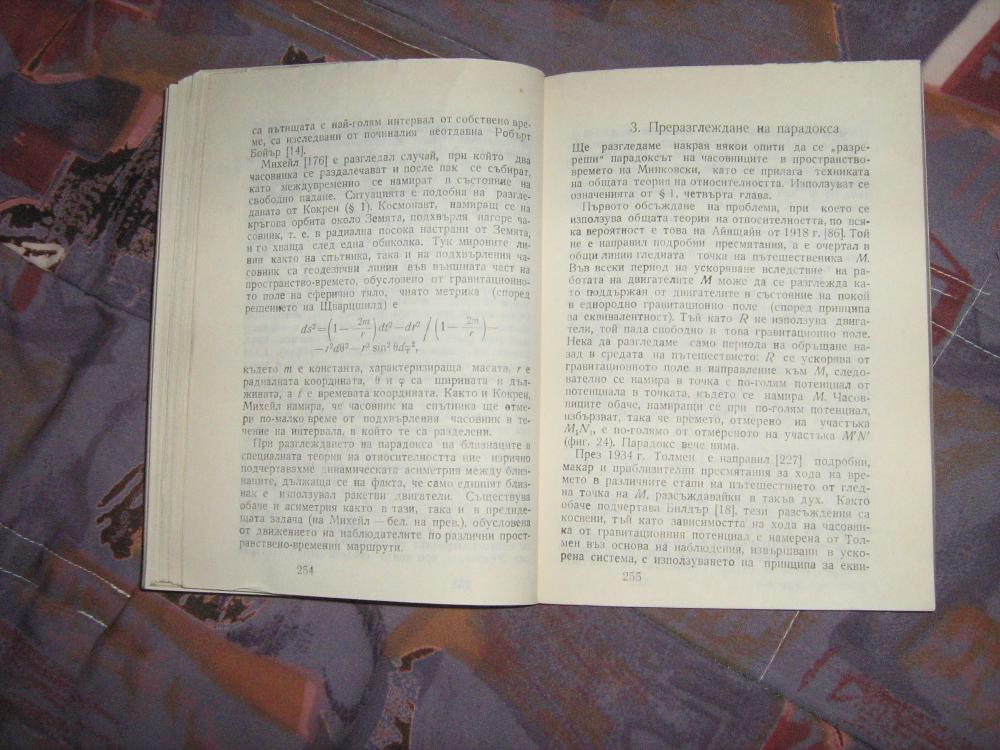 са пътищата с най-голям интервал от собствено вре-
ме, са изследвани от починалия неотдавна Робърт
Бойър [14].
Михейл [176] е разгледал случай, при който два
часовника се раздалечават и после пак се събират,
като междувременно се намират в състояние на
свободно падане. Ситуацията е подобна на разгле-
даната от Кокрен (§ 1). Космонавт, намиращ се на
кръгова орбита около Земята, подхвърля нагоре ча-
совник, т. е. в радиална посока настрани от Земята,
и го хваща след една обиколка. Тук мировите ли-
нии както на спътника, така и на подхвърления ча-
совник са геодезични линии във външната част на
пространство-времето, обусловено от гравитационно-
то поле на сферично тяло, чиято метрика (според
решението на Щварцшилд) е
ds²=(1− 2m/r)dt²−dr² / (1− 2m/r)−
−r²dθ²−r² sin² θdφ²,
където m е константа, характеризираща масата, r е
радиалната координата, θ и φ са ширината и дъл-
жината, а t е времевата координата. Както и Кокрен,
Михейл намира, че часовник на спътника ще отме-
ри по-малко време от подхвърления часовник в те-
чение на интервала, в който те са разделени.
При разглеждането на парадокса на близнаците в
специалната теория на относителността ние изрично
подчертавахме динамическата асиметрия между близ-
наците, дължаща се на факта, че само единият близ-
нак е използувал ракетни двигатели. Съществува
обаче и асиметрия както в тази, така и в предиде-
щата задача (на Михейл — бел. на прев.), обусловена
от движението на наблюдателите по различни прост-
ранствено-временни маршрути.
254
3. Преразглеждане на парадокса
Ще разгледаме накрая някои опити да се „разре-
реши“ парадоксът на часовниците в пространство-
времето на Минковски, като се прилага техниката
на общата теория на относителността. Използуват се
означенията от § 1, четвърта глава.
Първото обсъждане на проблема, при което се
използува общата теория на относителността, по вся-
ка вероятност е това на Айнщайн от 1918 г. [86]. Той
не е направил подробни пресмятания, а е очертал в
общи линии гледната точка на пътешественика M.
Във всеки период на ускоряване вследствие на ра-
ботата на двигателите M може да се разглежда ка-
то поддържан от двигателите в състояние на покой
в еднородно гравитационно поле (според принципа
за еквивалентност). Тъй като R не използува двига-
тели, той пада свободно в това гравитационно поле.
Нека да разгледаме само периода на обръщане на-
зад в средата на пътешествието: R се ускорява от
гравитационното поле в направление към M, следо-
вателно се намира в точка с по-голям потенциал от
потенциала в точката, където се намира M. Часов-
ниците обаче, намиращи се при по-голям потенциал,
избързват, така че времето, отмерено на участъка
M₁N₁, е по-голямо от отмереното на участъка M′N′
(фиг. 24). Парадокс вече няма.
През 1934 г. Толмен е направил [227] подробни,
макар и приблизителни пресмятания за хода на вре-
мето в различните етапи на пътешествието от глед-
на точка на M, разсъждавайки в такъв дух. Както
обаче подчертава Билдър [18], тези разсъждения са
косвени, тъй като зависимостта на хода на часовни-
ка от гравитационния потенциал е намерена от Тол-
мен въз основа на наблюдения, извършвани в уско-
рена система, с използуването на принципа за екви-
255